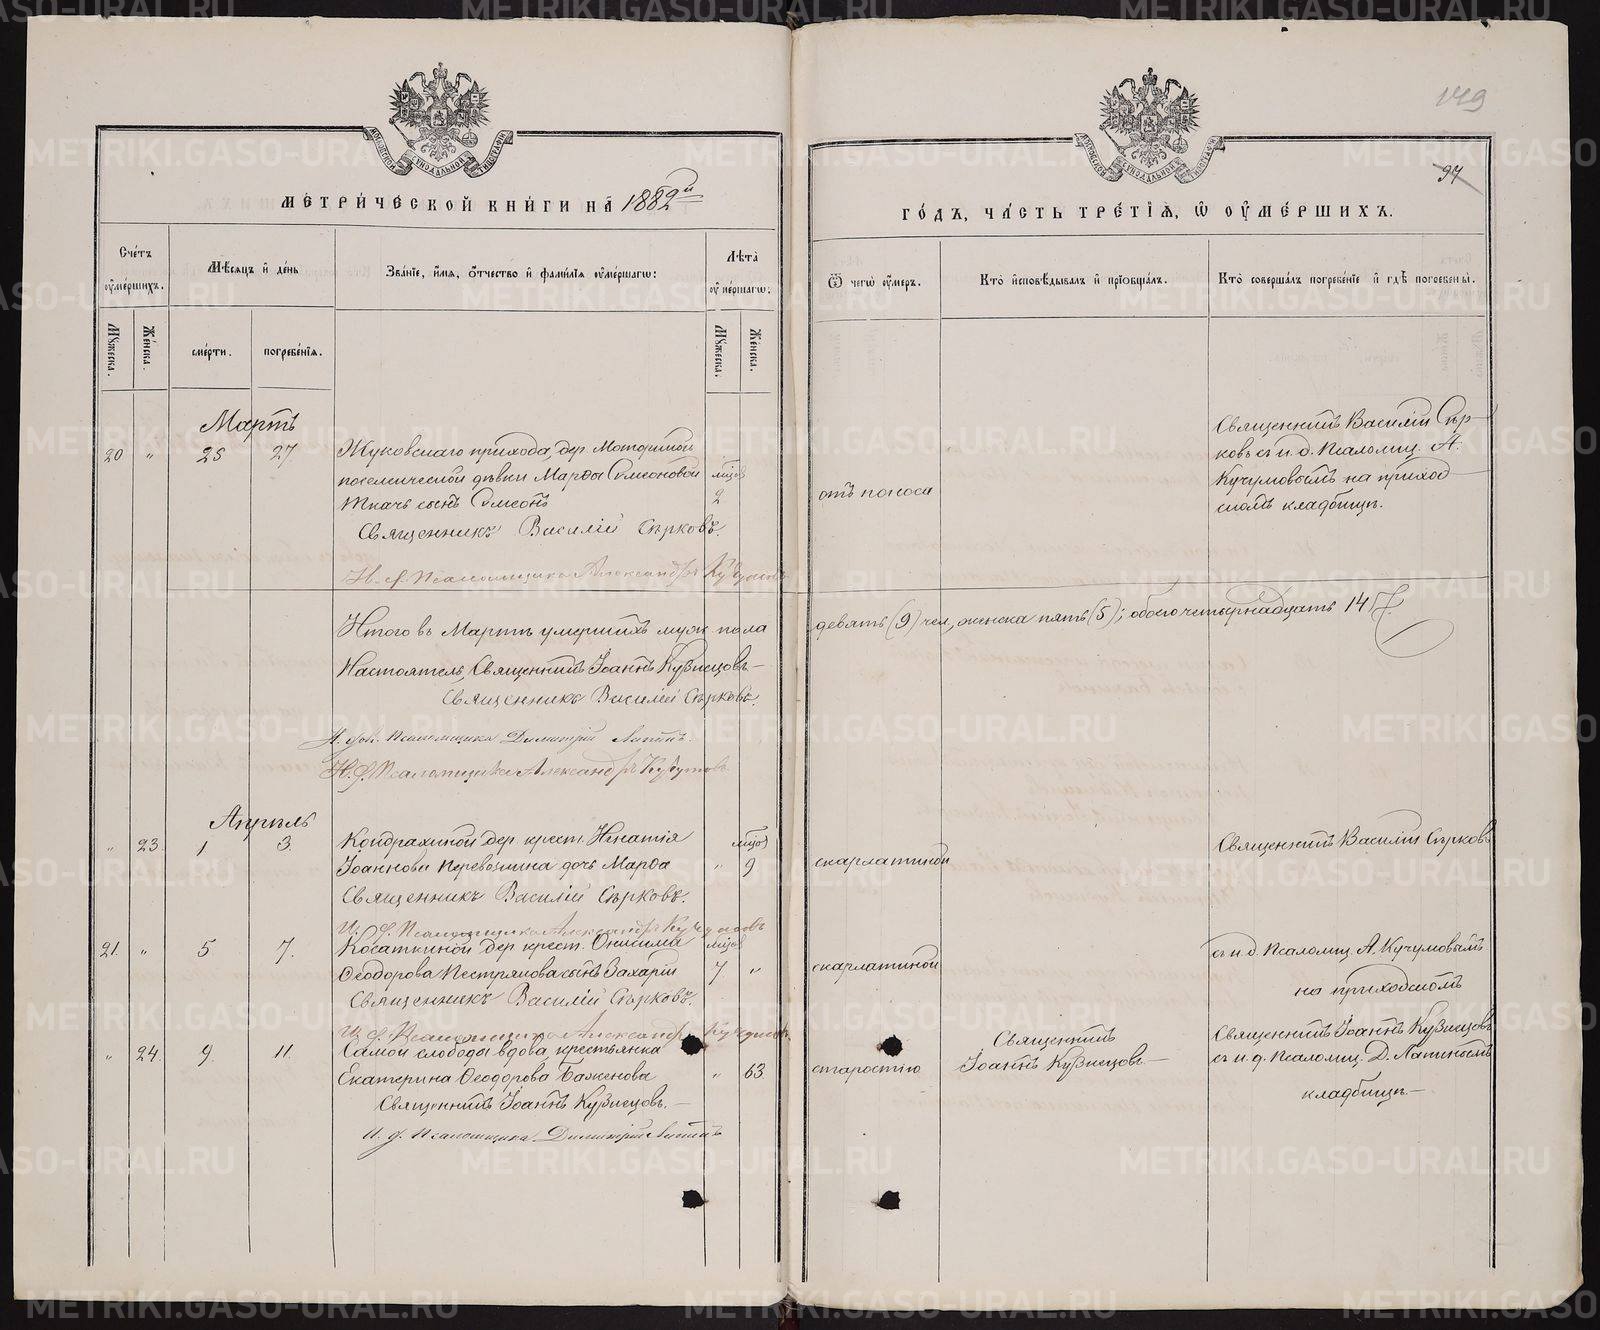 149
97
МЕТРИЧЕСКОЙ КНИГИ НА 1882й
ГОДЪ, ЧАСТЬ ТРЕТІЯ, Ѡ ОУМЕРШИХЪ.
Счетъ оумершихъ.
Мѣсяцъ и день
Званіе, имя, отчество и фамилія оумершагѡ:
Лѣта оумершагѡ:
Ѿ чегѡ оумеръ.
Кто исповѣдывалъ и пріобщалъ.
Кто совершалъ погребеніе и гдѣ погребены.
Мꙋжеска.
Женска.
смерти.
погребенія.
Мꙋжеска.
Женска.
Мартъ
20 " 25 27
Жуковскаго прихода, дер.
дѣвки Марѳы Симеоновой
сынъ Симеонъ
мцов 2
отъ поноса
Священникъ Василій Сѣр-
ковъ съ и. д. Псаломщ. А.
Кучумовымъ на приход
скомъ кладбищѣ.
Священникъ Василій Сѣрковъ.
И. д. Псаломщика Александръ Кучумовъ
Итого въ Мартѣ умершихъ муж пола
девять (9) чел, женска пять (5); обоего четырнадцать 14
Настоятель, Священникъ Іоаннъ Кузнецовъ
Священникъ Василій Сѣрковъ.
И. дол. Псаломщика Димитрій Лапинъ.
И. д. Псаломщика Александръ Кучумовъ
Апрѣль
" 23. 1 3.
Кондрахиной дер. крест. Игнатія
Іоаннова Перевозкина дочь Марѳа
мцов " 9
скарлатиной
Священникъ Василій Сѣрковъ
Священникъ Василій Сѣрковъ.
И. д. Псаломщика Александръ Кучумовъ
21. " 5 7.
Косаткиной дер. крест. Онисима
Ѳеодорова Пестрякова сынъ Захарій
мцов 7 "
скарлатиной
съ и. д. Псаломщ. А. Кучумовымъ
на приходскомъ
Священникъ Василій Сѣрковъ.
И. д. Псаломщика Александръ Кучумовъ
" 24. 9. 11.
Самой слободы вдова, крестьянка
Екатерина Ѳеодорова Баженова
" 63.
старостію
Священникъ
Іоаннъ Кузнецовъ
Священникъ Іоаннъ Кузнецовъ
съ и. д. Псаломщ. Д. Лапинымъ
кладбищѣ.
Священникъ Іоаннъ Кузнецовъ.
И. д. Псаломщика Димитрій Лапинъ
METRIKI.GASO-URAL.RU